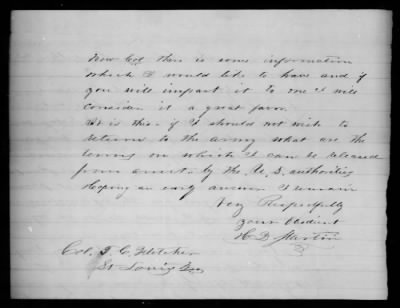 Now Col there is some information
which I would like to have and if
you will impart it to me I will
consider it a great favor.
It is this. if I should not wish to
return to the army what are the
terms on which I can be released
from arrest by the U. S. authorities
Hoping an early answer I remain
Very Respectfully
your obedient
H D Martin
Col. T. C. Fletcher
St Louis Mo